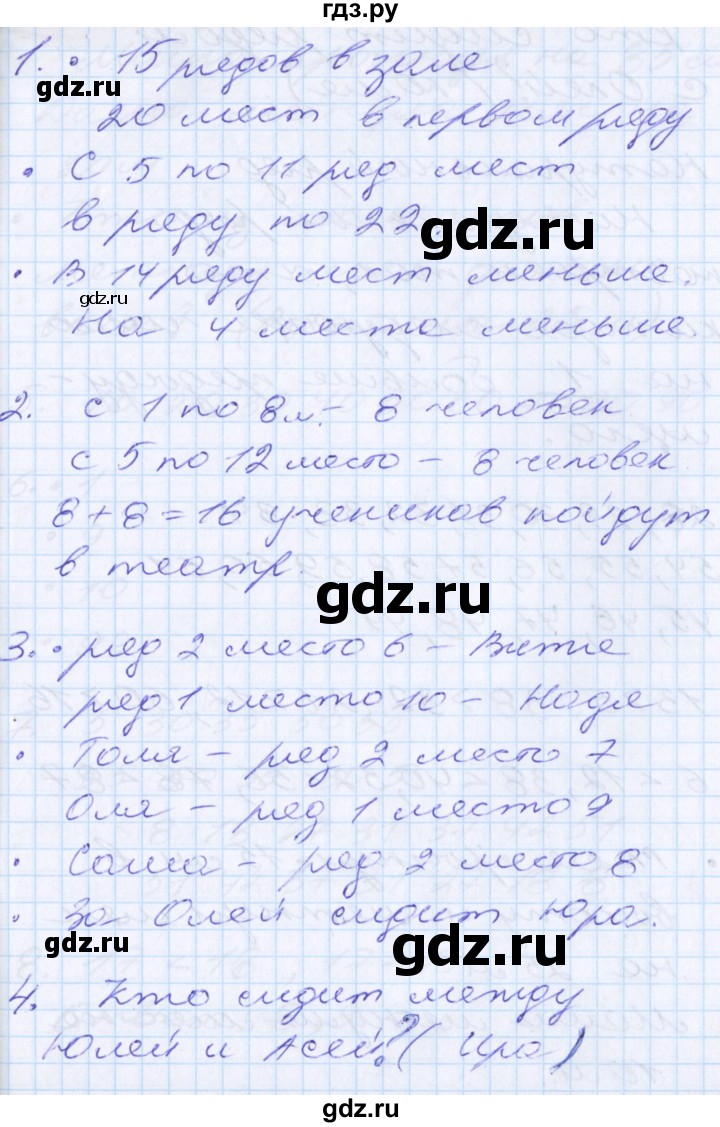 гдз.ру
1. • 15 рядов в зале
gdz.ru
20 мест в первом ряду
• С 5 по 11 ряд мест
в ряду по 22.
gdz.ru
• В 14 ряду мест меньше.
gdz.ru
На 4 места меньше.
2. с 1 по 8 м. – 8 человек
с 5 по 12 место – 8 человек
8 + 8 = 16 учеников пойдут
в театр.
gdz.ru
3. • ряд 2 место 6 – Витя
ряд 1 место 10 – Надя
• Толя – ряд 2 место 7
Оля – ряд 1 место 9
• Саша – ряд 2 место 8
• За Олей сидит Юра.
gdz.ru
gdz.ru
4. Кто сидит между
Юлей и Асей? (Ира)
gdz.ru